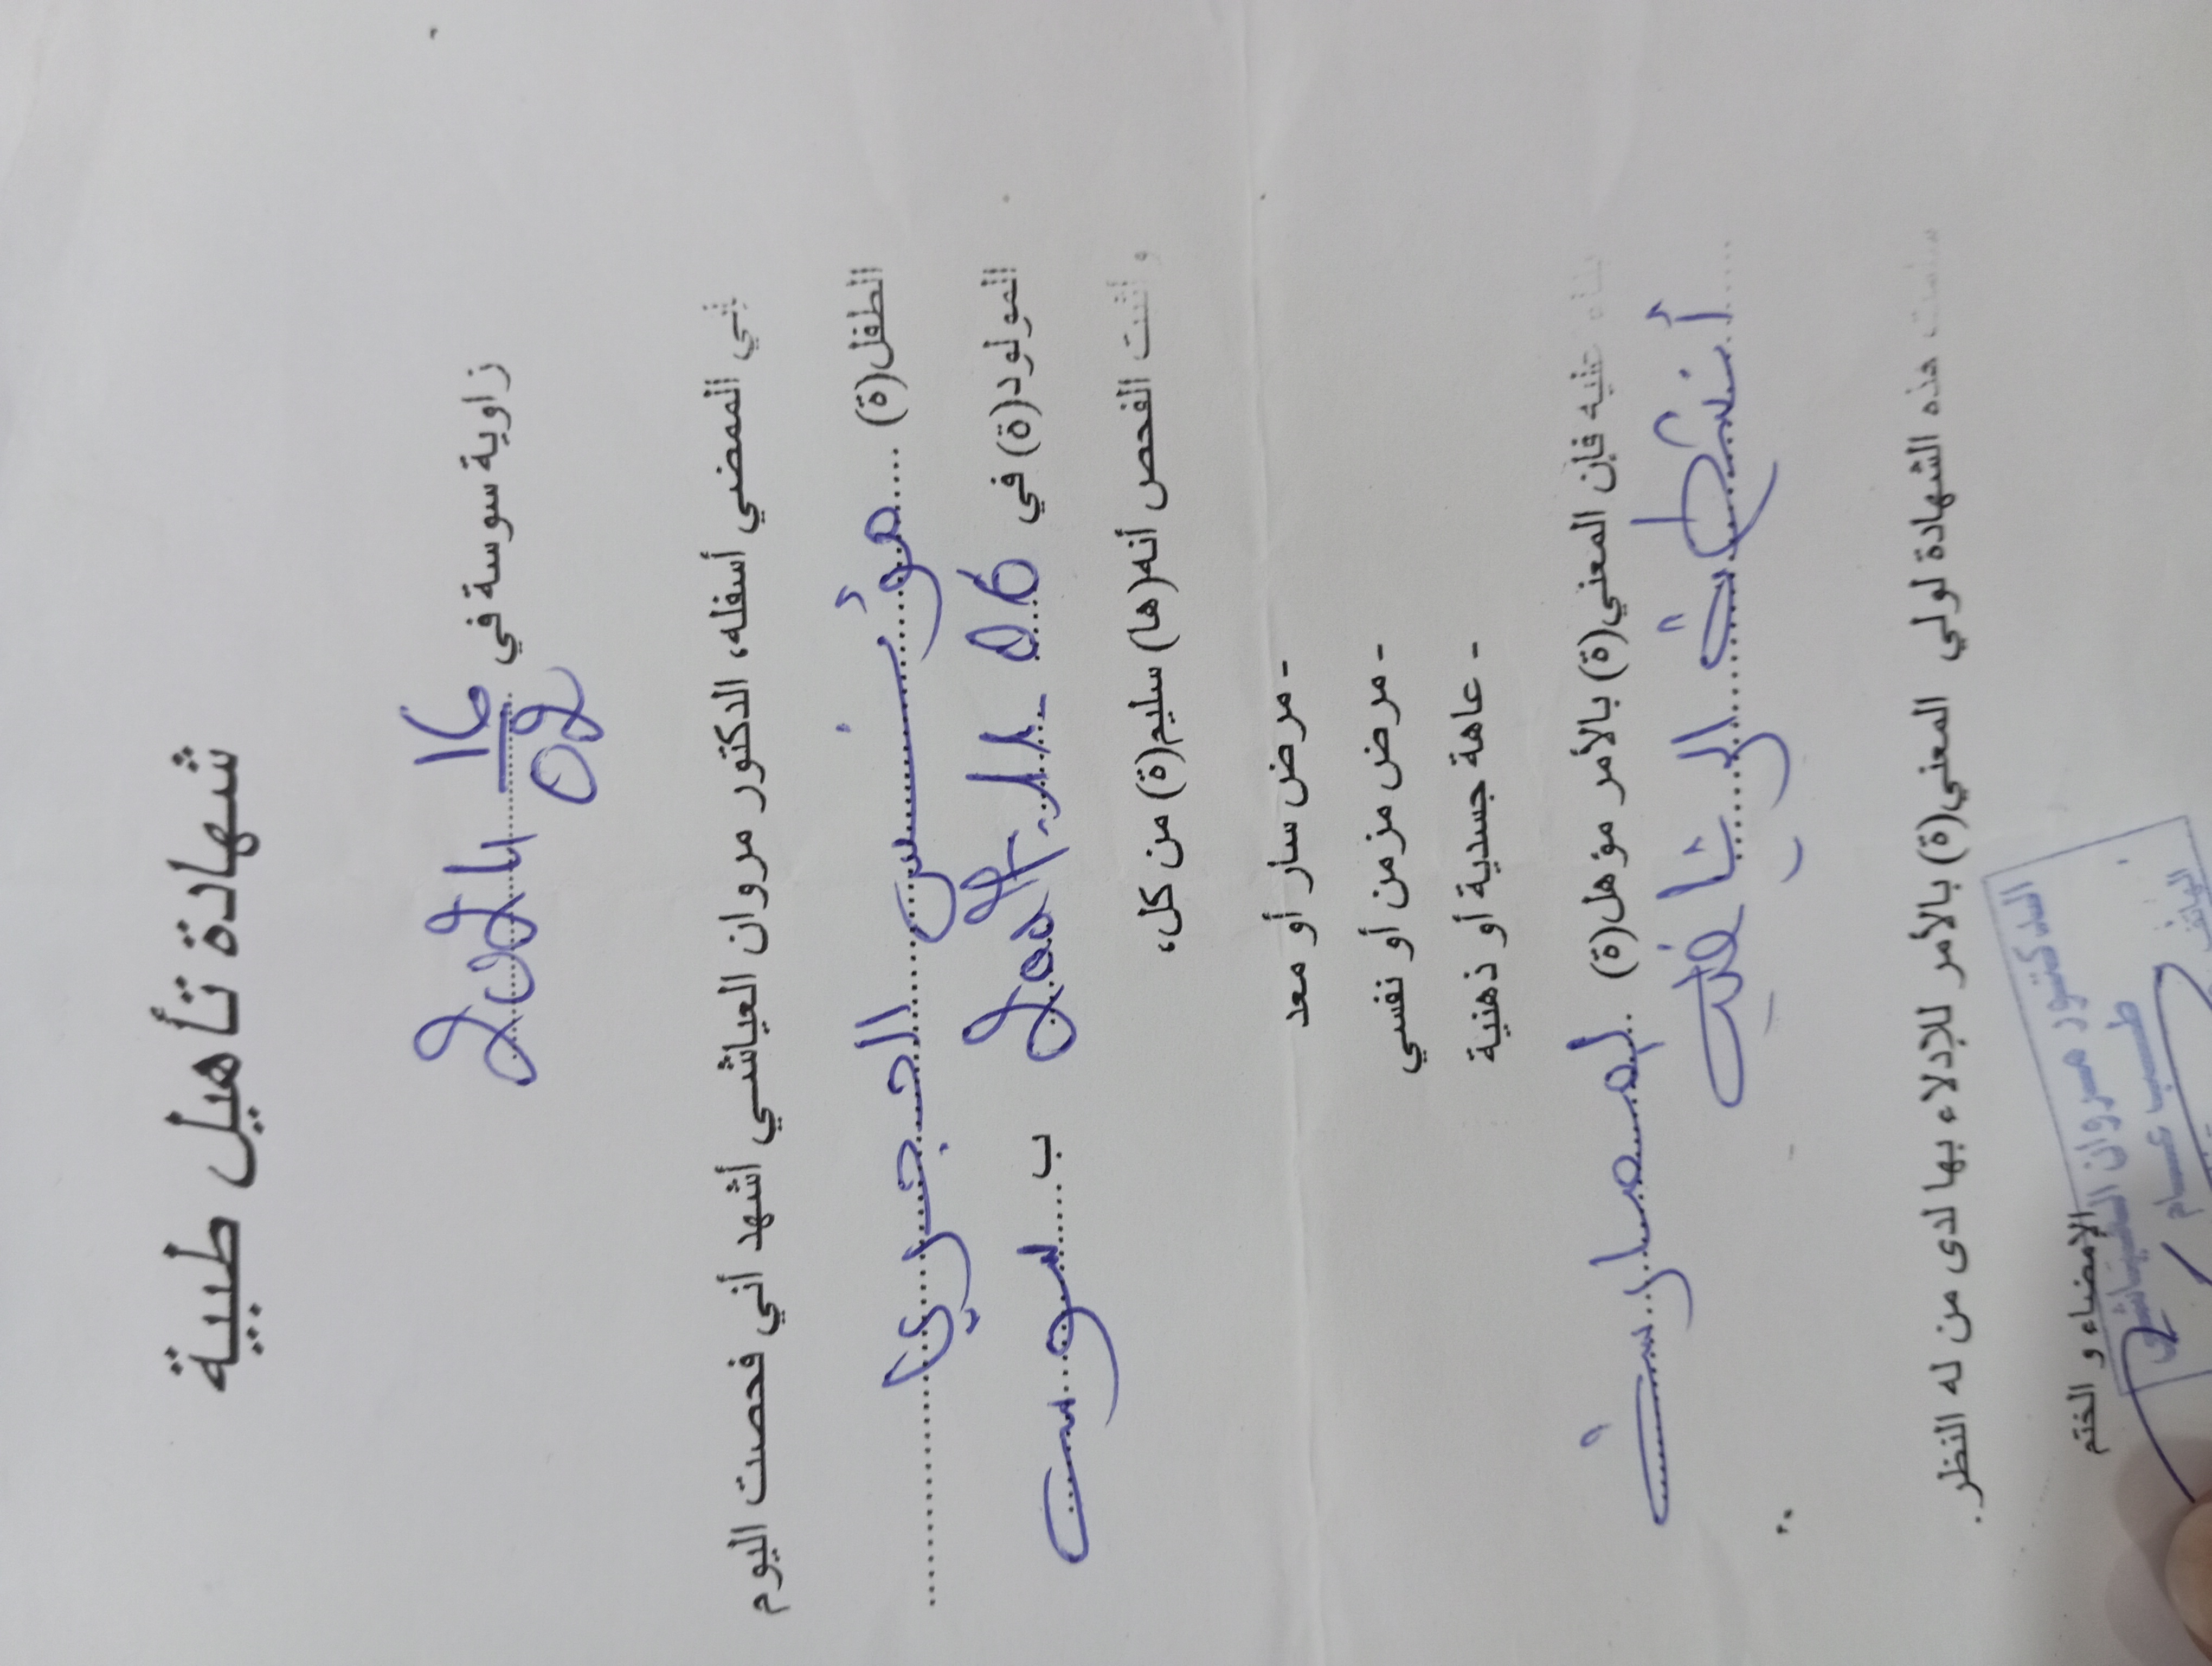 شهادة تأهيل طبية
زاوية سوسة في 16/02 2021
إني الممضي أسفله، الدكتور مروان العياشي أشهد أني فحصت اليوم
الطفل(ة) ....مؤنس الجبري.............
المولود(ة) في 06 - 11 - 2007 ب.....سوسة
و أثبت الفحص أنه(ها) سليم(ة) من كل،
- مرض سار أو معد
- مرض مزمن أو نفسي
- عاهة جسدية أو ذهنية
بناء عليه فإن المعني(ة) بالأمر مؤهل(ة) ..لممارسة
أنشطة الرياضة
سلمت هذه الشهادة لولي المعني(ة) بالأمر للإدلاء بها لدى من له النظر.
الإمضاء و الختم
الدكتور مروان العياشي
طبيب عام
الهاتف